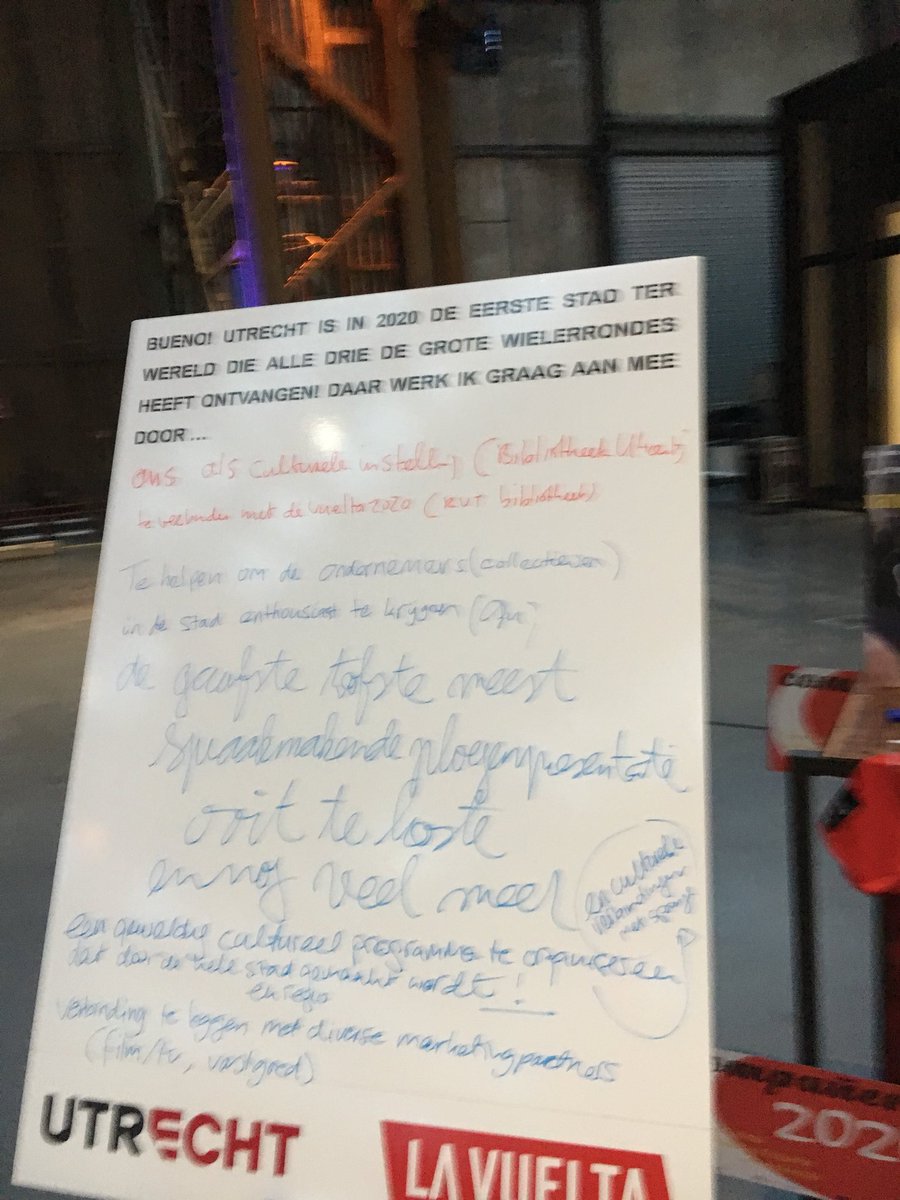 BUENO! UTRECHT IS IN 2020 DE EERSTE STAD TER
WERELD DIE ALLE DRIE DE GROTE WIELERRONDES
HEEFT ONTVANGEN! DAAR WERK IK GRAAG AAN MEE
DOOR ...
ons als culturele instelling (Bibliotheek Utrecht)
te verbinden met de vuelta 2020 (RUT bibliotheek)
Te helpen om de ondernemers (collectieven)
in de stad enthousiast te krijgen
de gaafste tofste meest
spraakmakende ploegenpresentatie
ooit te
en nog veel meer
en culturele
verbindingen
met
een geweldig cultureel programma te organiseren
dat door de hele stad wordt!
en regio
verbinding te leggen met diverse marketingpartners
(film/tv, vastgoed)
UTRECHT
LA VUELTA
202